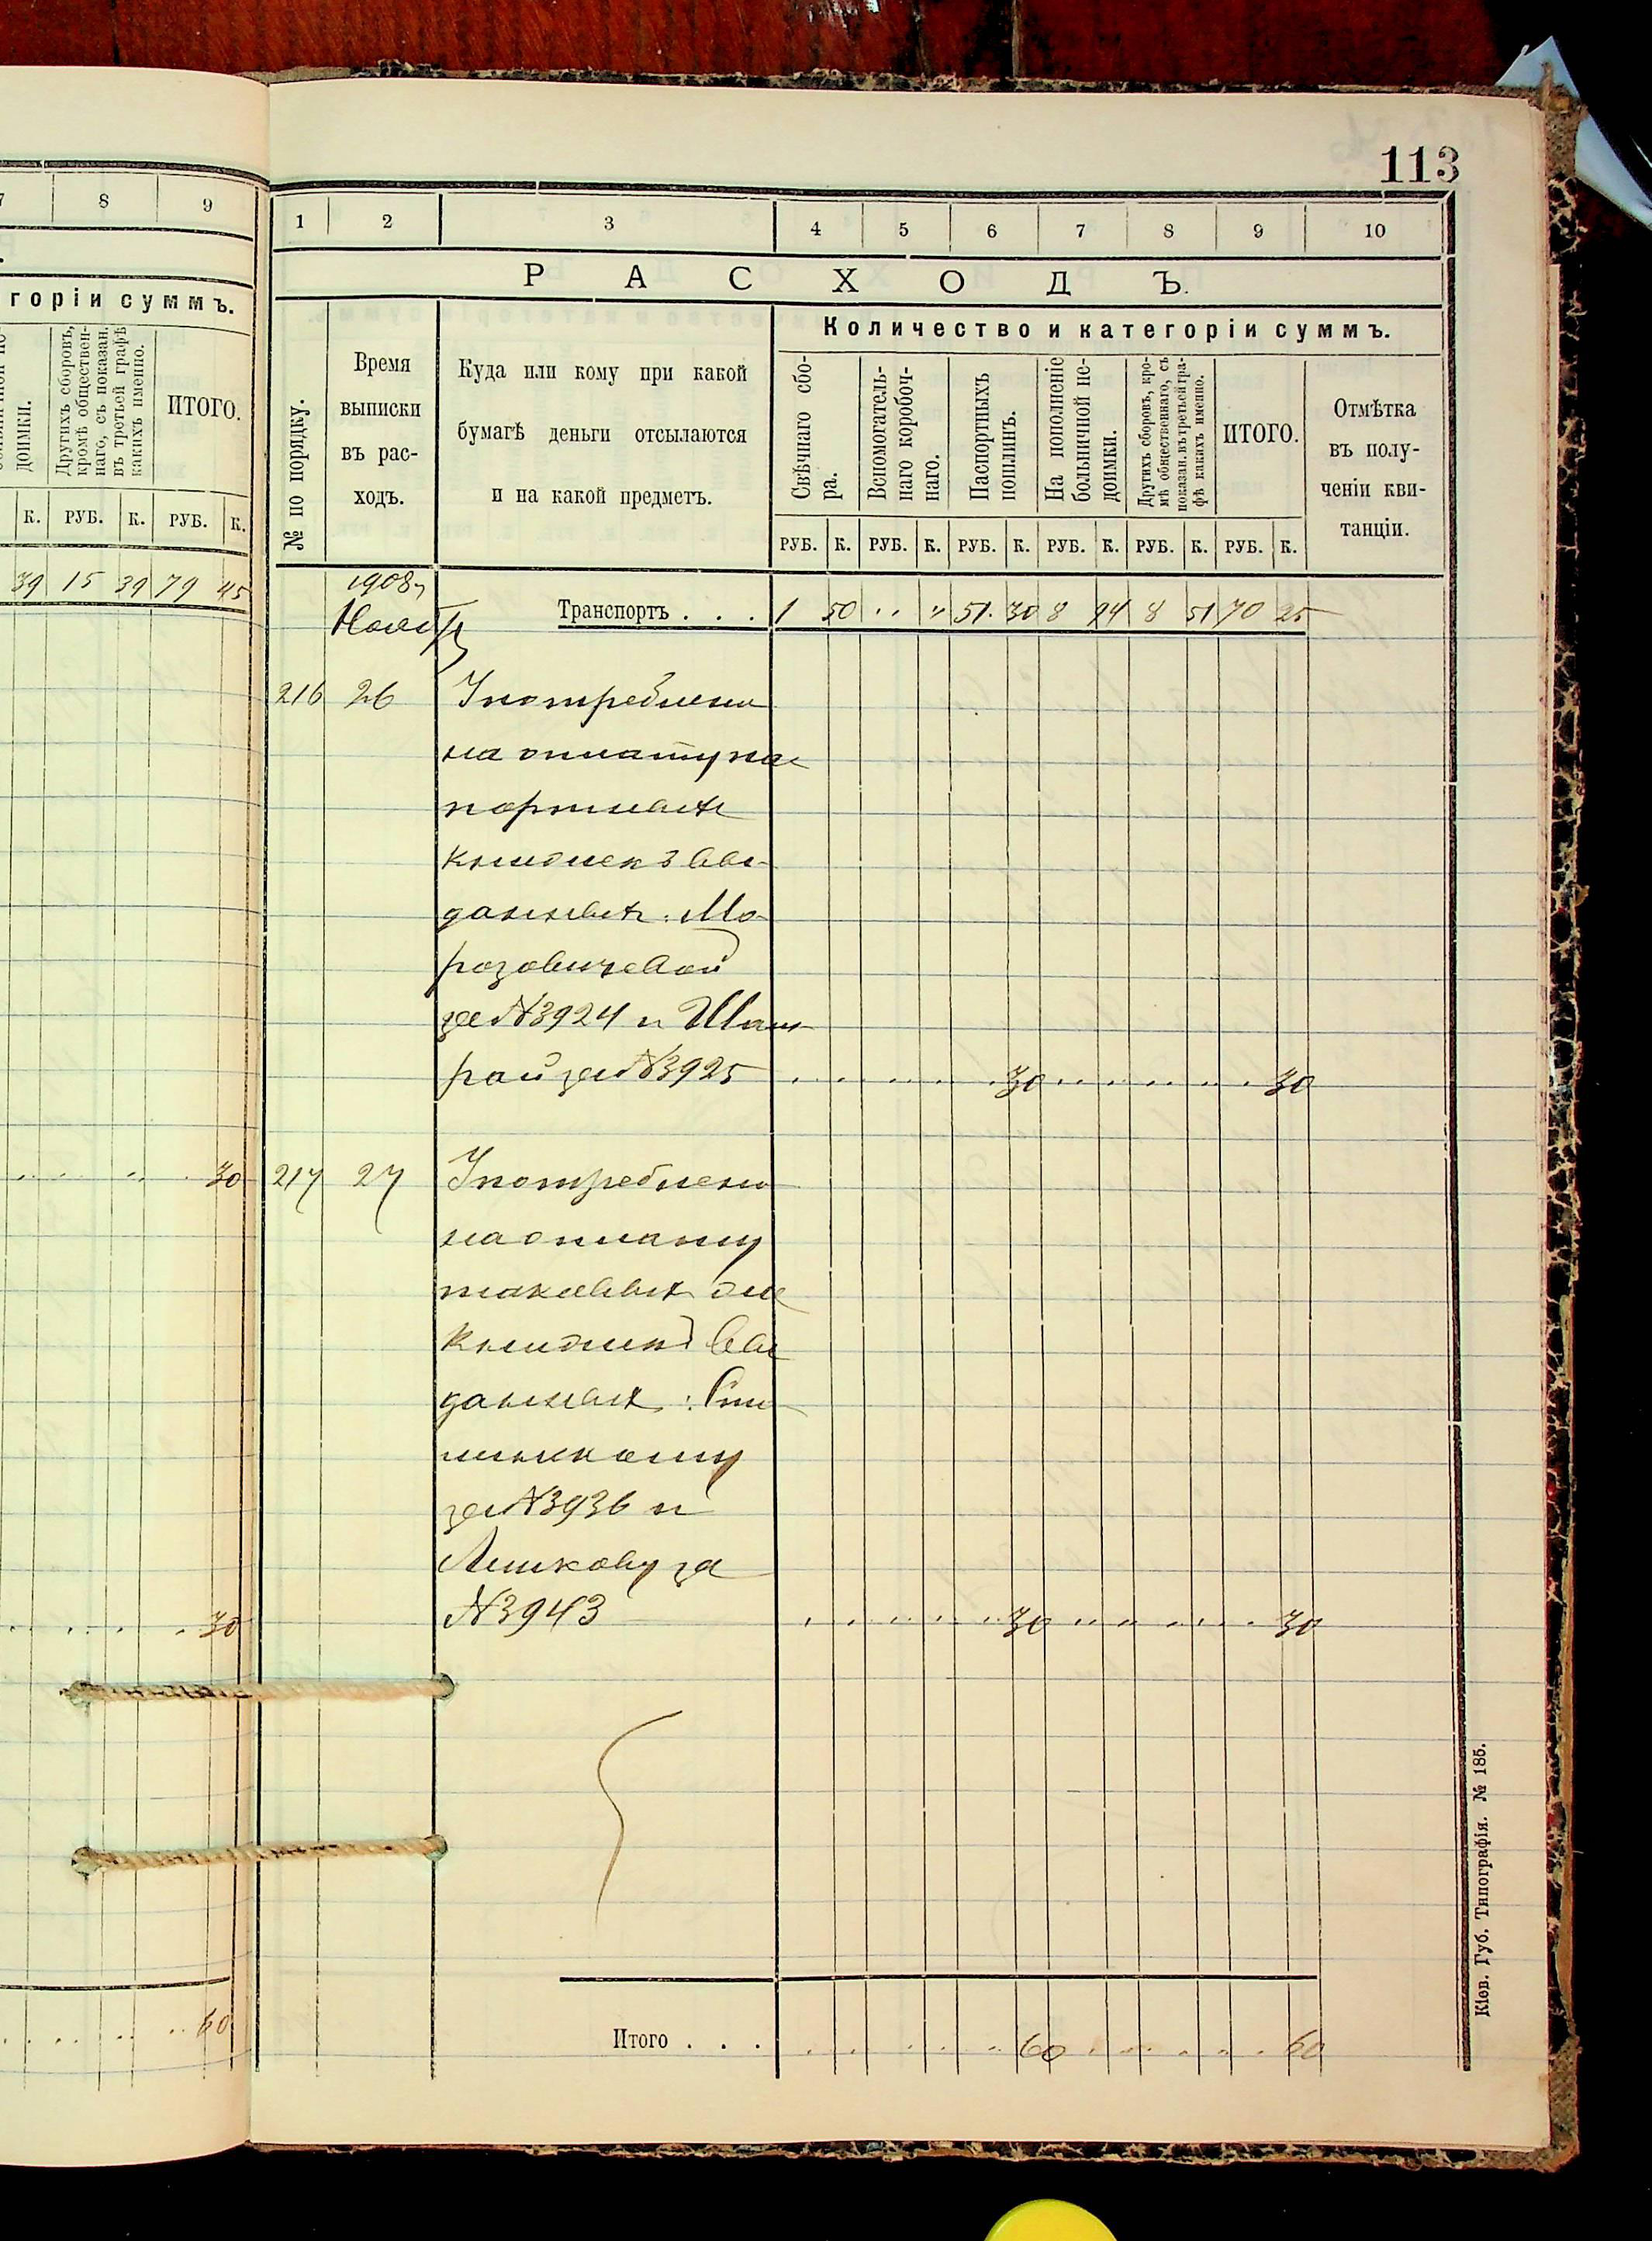 113
7 8 9
горіи суммъ.
доимки.
Другихъ сборовъ,
кромѣ обществен-
наго, съ показан.
въ третьей графѣ
какихъ именно.
ИТОГО.
К. РУБ. К. РУБ. К.
39 15 39 79 45
30
30
60
1 2 3 4 5 6 7 8 9 10
РАСХОДЪ.
№ по порядку.
Время
выписки
въ рас-
ходъ.
Куда или кому при какой
бумагѣ деньги отсылаются
и на какой предметъ.
Количество и категоріи суммъ.
Свѣчнаго сбо-
ра.
Вспомогатель-
наго коробоч-
наго.
Паспортныхъ
пошлинъ.
На пополненіе
больничной не-
доимки.
Другихъ сборовъ, кро-
мѣ общественнаго, съ
показан. въ третьей гра-
фѣ какихъ именно.
ИТОГО.
Отмѣтка
въ полу-
ченіи кви-
танціи.
РУБ. К. РУБ. К. РУБ. К. РУБ. К. РУБ. К. РУБ. К.
1908 г
Ноябр
Транспортъ . . . 1 50 " " 51 30 8 94 8 51 70 25
216 26 Употреблено
на оплату пас
портныхъ
книжекъ вы
данныхъ: Мо
розовичевой
за №3924 и
рай за №3925 30 30
217 27 Употреблено
на оплату
таковыхъ же
книжекъ вы
данныхъ:
за №3936 и
Лишкову за
№3943 30 30
Итого . . . 60 60
Кіев. Губ. Типографія. № 185.